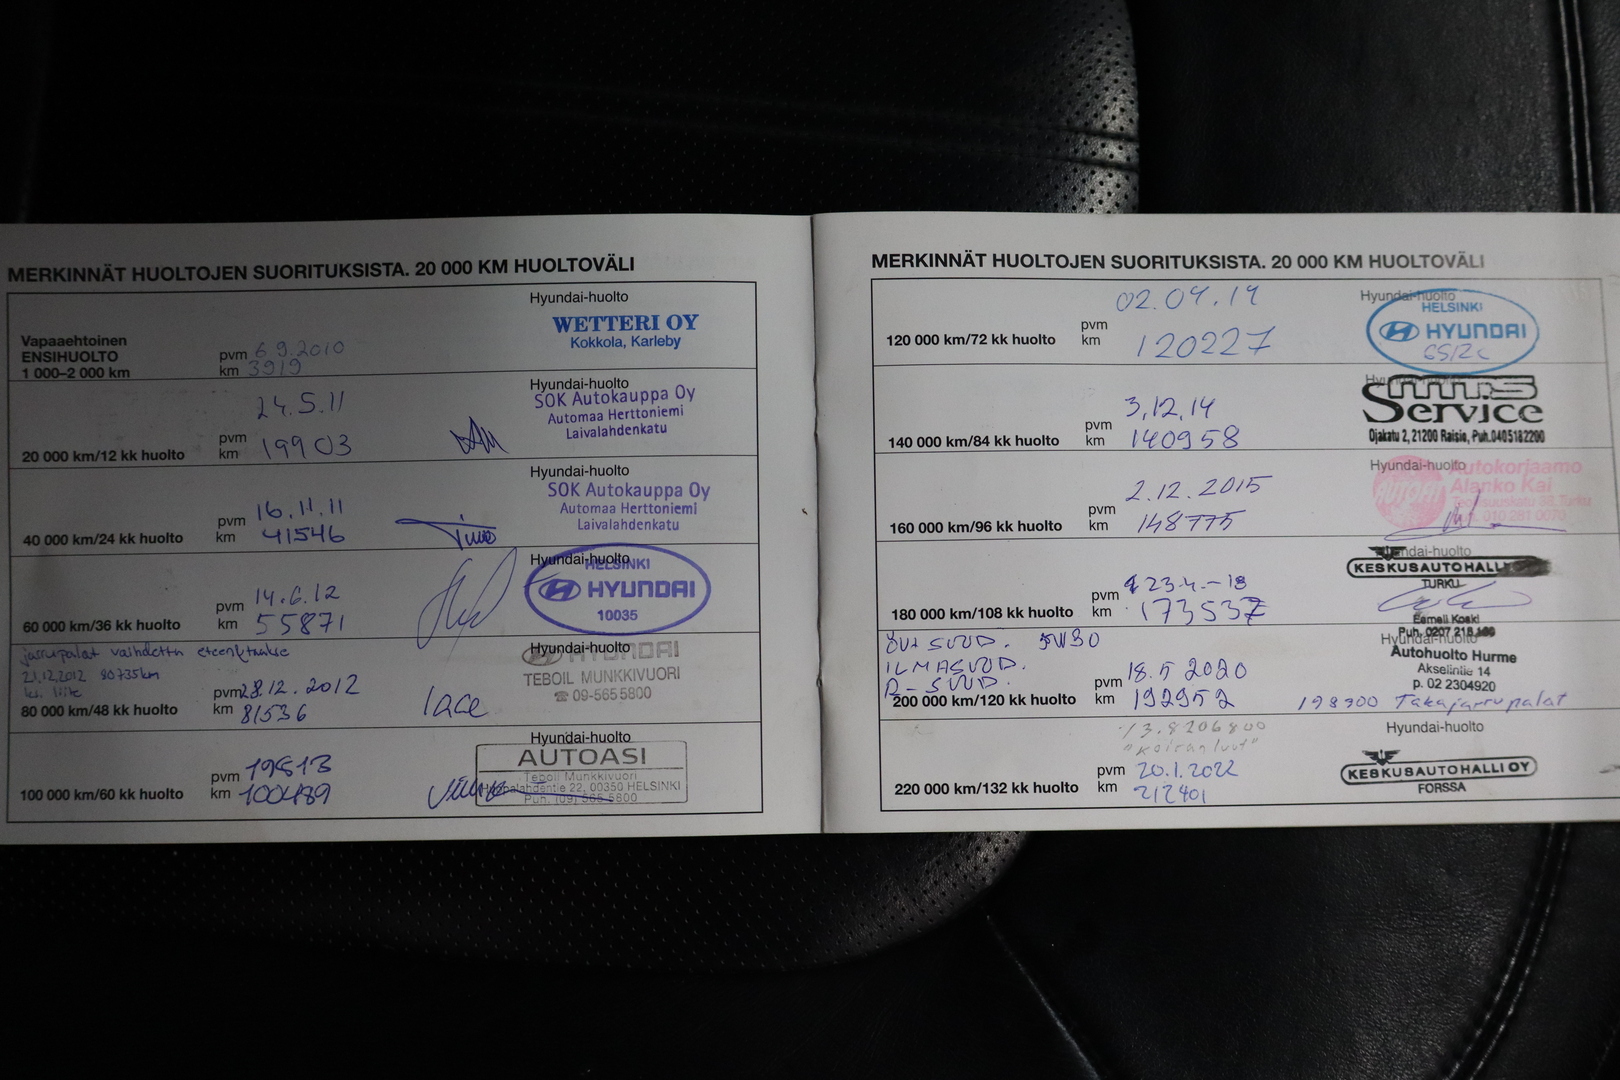 MERKINNÄT HUOLTOJEN SUORITUKSISTA. 20 000 KM HUOLTOVÄLI
Vapaaehtoinen
ENSIHUOLTO
1 000–2 000 km
pvm 6.9.2010
km 3919
Hyundai-huolto
WETTERI OY
Kokkola, Karleby
20 000 km/12 kk huolto
pvm 24.5.11
km 19903
Hyundai-huolto
SOK Autokauppa Oy
Automaa Herttoniemi
Laivalahdenkatu
40 000 km/24 kk huolto
pvm 16.11.11
km 41546
Timo
Hyundai-huolto
SOK Autokauppa Oy
Automaa Herttoniemi
Laivalahdenkatu
60 000 km/36 kk huolto
pvm 14.6.12
km 55871
Hyundai-huolto
HELSINKI
HYUNDAI
10035
jarrupalat vaihdettu eteen/taakse
21.12.2012 80735km
80 000 km/48 kk huolto
pvm 28.12.2012
km 81536
Hyundai-huolto
HYUNDAI
TEBOIL MUNKKIVUORI
☎ 09-565 5800
100 000 km/60 kk huolto
pvm
km 100489
Hyundai-huolto
AUTOASI
Teboil Munkkivuori
Huopalahdentie 22, 00350 HELSINKI
Puh. (09) 565 5800
MERKINNÄT HUOLTOJEN SUORITUKSISTA. 20 000 KM HUOLTOVÄLI
120 000 km/72 kk huolto
pvm 02.04.14
km 120227
Hyundai-huolto
HELSINKI
HYUNDAI
140 000 km/84 kk huolto
pvm 3.12.14
km 140958
Hyundai-huolto
mts
Service
Ojakatu 2, 21200 Raisio, Puh.0405182200
160 000 km/96 kk huolto
pvm 2.12.2015
km 148775
Hyundai-huolto
AUTOFIT
Autokorjaamo
Alanko Kai
Puh. 010 281 0070
180 000 km/108 kk huolto
pvm 23.4.-18
km 173537
Hyundai-huolto
KESKUSAUTOHALLI
TURKU
Eemeli Koski
ÖLJYSUOD. 5W30
ILMASUOD.
R-SUOD.
200 000 km/120 kk huolto
pvm 18.5 2020
km 192952
Hyundai-huolto
Autohuolto Hurme
Akselintie 14
p. 02 2304920
198300 Takajarrupalat
220 000 km/132 kk huolto
pvm 20.1.2022
km 212401
Hyundai-huolto
KESKUSAUTOHALLI OY
FORSSA